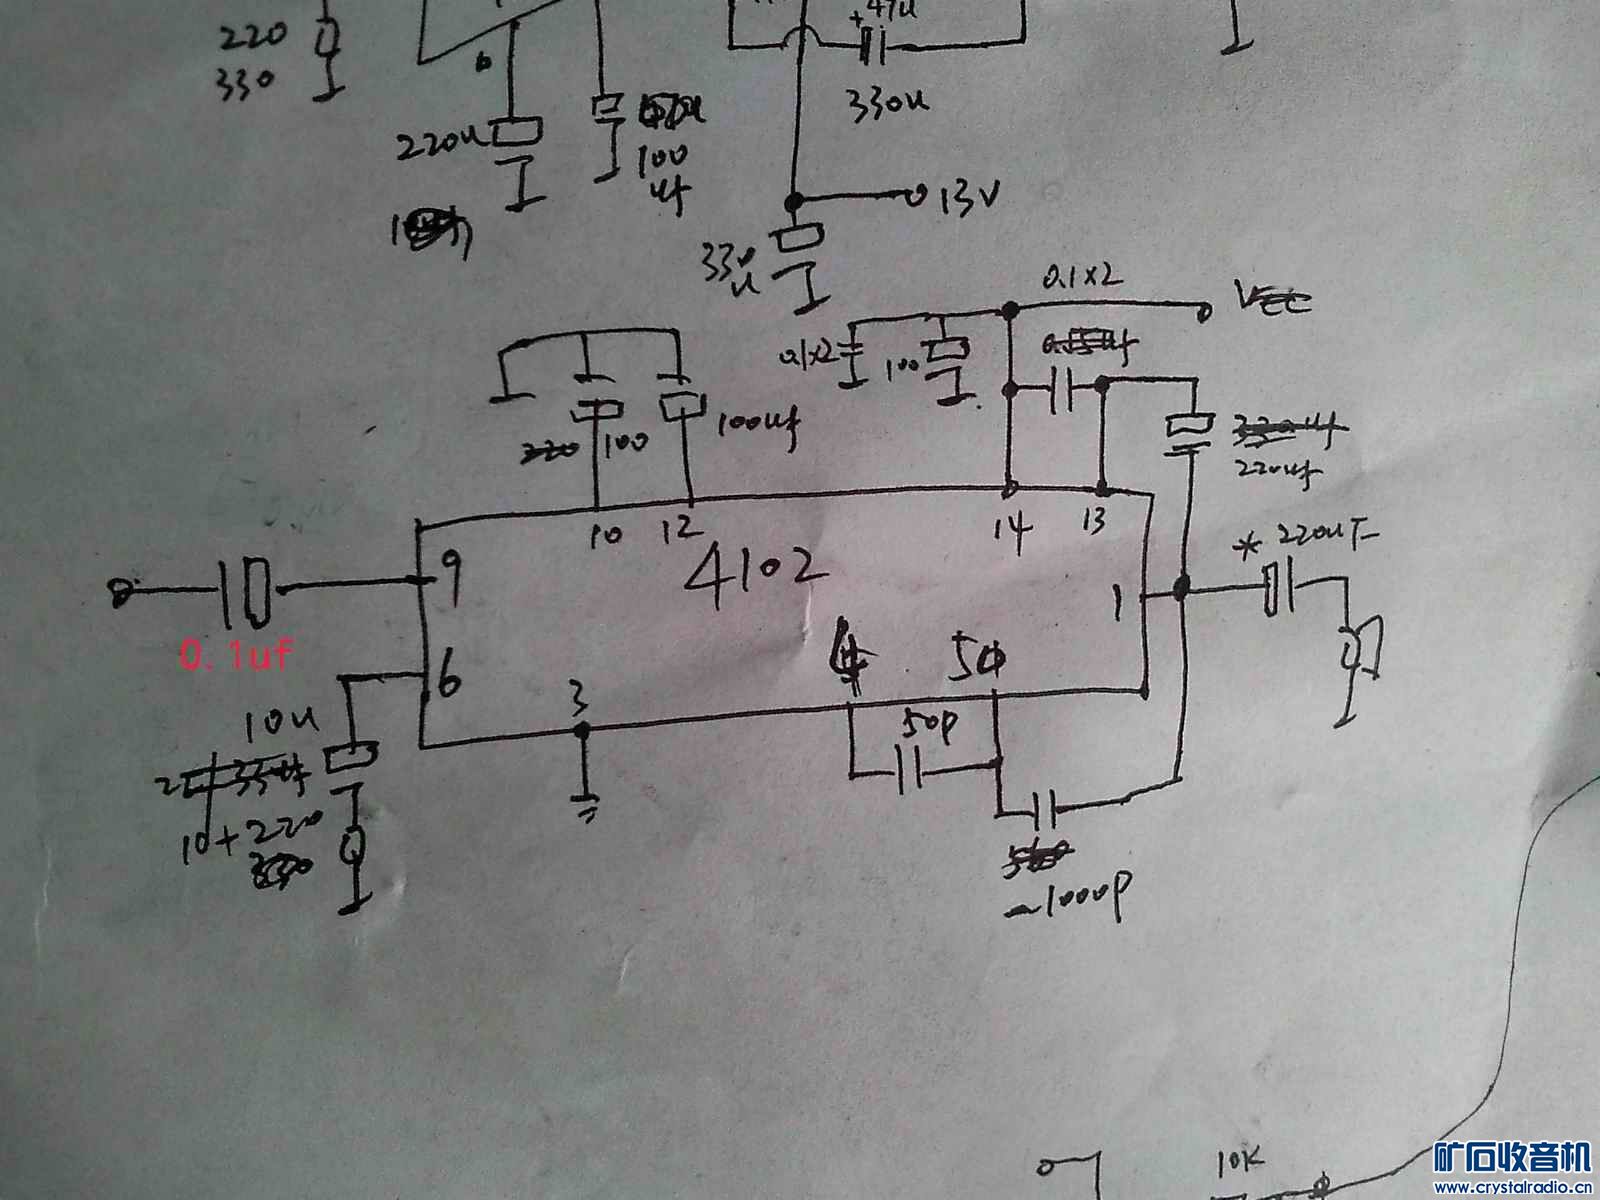 220
330
6
220u
100
uf
+47u
330u
13V
330
u
0.1x2
0.1x2
100
100
100uf
220uf
10
12
14
13
9
4102
1
* 220uF
0.1uf
6
3
5
50p
10u
10+220
~1000P
10K
矿石收音机
www.crystalradio.cn